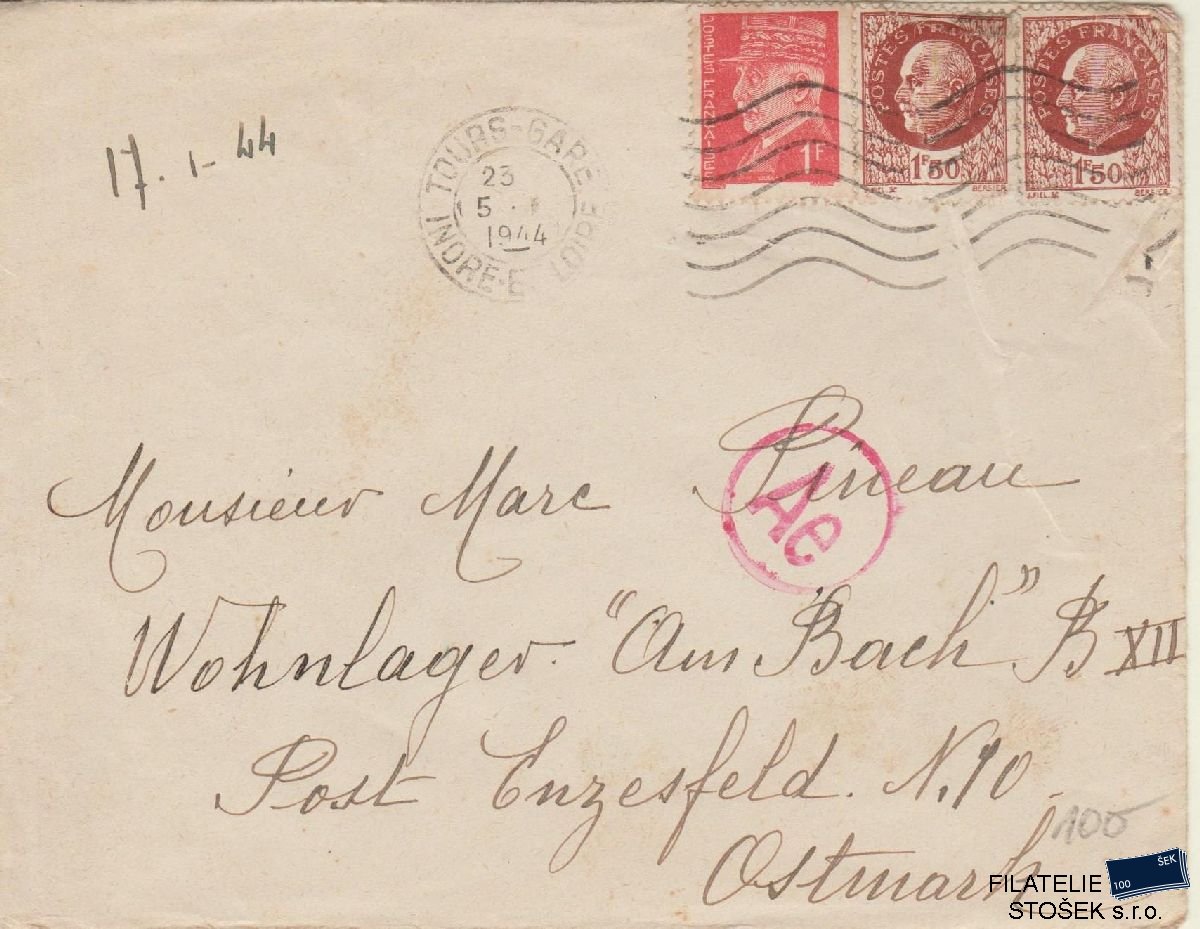 POSTES FRANÇAISES
1F
POSTES FRANÇAISES
1F50
BERSIER
POSTES FRANÇAISES
1F50
BERSIER
17. 1- 44
TOURS-GARE
23
5
1944
INDRE-E LOIRE
Monsieur Marc Pineau
Ae
Wohnlager "Am Bach" B XII
Post Enzesfeld. N.10
Ostmark
100
FILATELIE
STOŠEK s.r.o.
100
ŠEK